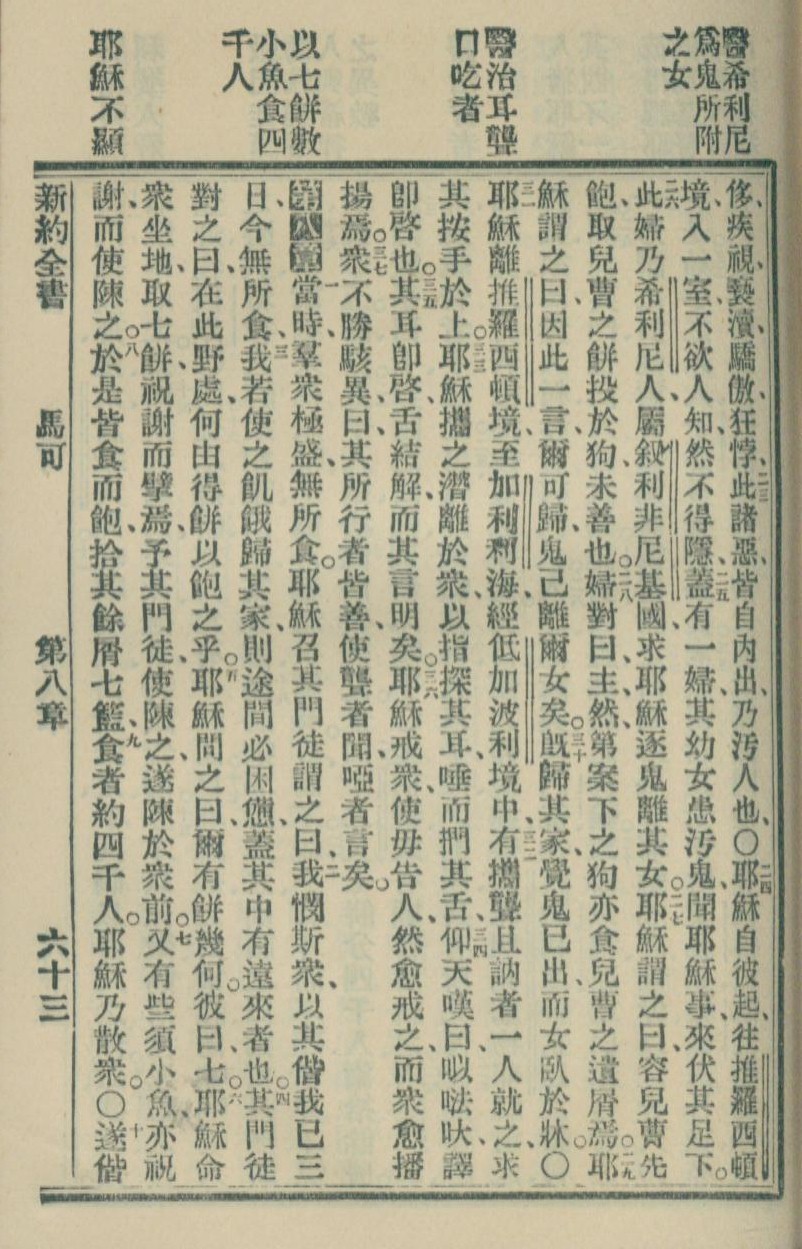 醫希利尼
爲鬼所附
之女
醫治耳聾
口吃者
以七餅數
小魚食四
千人
耶穌不顯
侈、疾視、褻瀆、驕傲、狂悖、二三此諸惡、皆自內出、乃汚人也、〇二四耶穌自彼起、往推羅西頓
境、入一室、不欲人知、然不得隱、二五蓋有一婦、其幼女患汚鬼、聞耶穌事、來伏其足下。
二六此婦乃希利尼人、屬叙利非尼基國、求耶穌逐鬼離其女。二七耶穌謂之曰、容兒曹先
飽、取兒曹之餅投於狗、未善也。二八婦對曰、主、然、第案下之狗、亦食兒曹之遺屑焉。二九耶
穌謂之曰、因此一言、爾可歸、鬼已離爾女矣。三十旣歸其家、覺鬼已出、而女臥於牀。〇
三一耶穌離推羅西頓境、至加利利海、經低加波利境中、三二有攜聾且訥者一人就之、求
其按手於上。三三耶穌攜之潛離於衆、以指探其耳、唾而捫其舌、三四仰天嘆曰、㕥呿吠、譯
卽啓也。三五其耳卽啓、舌結解、而其言明矣。三六耶穌戒衆、使毋吿人、然愈戒之、而衆愈播
揚焉。三七衆不勝駭異、曰、其所行者皆善、使聾者聞、啞者言矣。
第八章一當時羣衆極盛、無所食。耶穌召其門徒謂之曰、二我憫斯衆、以其偕我已三
日、今無所食、三我若使之飢餓歸其家、則途間必困憊、蓋其中有遠來者也。四其門徒
對之曰、在此野處、何由得餅以飽之乎。五耶穌問之曰、爾有餅幾何。彼曰、七。六耶穌命
衆坐地、取七餅、祝謝而擘焉、予其門徒、使陳之、遂陳於衆前。七又有些須小魚、亦祝
謝、而使陳之。八於是皆食而飽、拾其餘屑七籃、九食者約四千人。耶穌乃散衆。〇十遂偕
新約全書 馬可 第八章 六十三